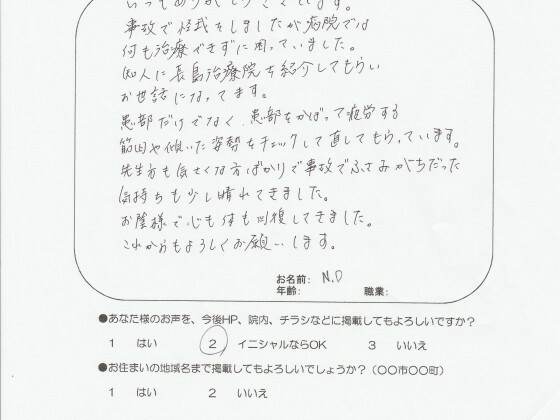 いつもありがとうございます。
事故で怪我をしましたが病院では
何も治療できずに困っていました。
知人に長島治療院を紹介してもらい
お世話になってます。
患部だけでなく、患部をかばって疲労する
筋肉や傾いた姿勢をチェックして直してもらっています。
先生方も気さくな方ばかりで事故でふさぎがちだった
気持ちも少し晴れてきました。
お陰様で心も体も回復してきました。
これからもよろしくお願いします。
お名前: N.D
年齢: 職業:
●あなた様のお声を、今後HP、院内、チラシなどに掲載してもよろしいですか?
1 はい 2 イニシャルならOK 3 いいえ
●お住まいの地域名まで掲載してもよろしいでしょうか?(〇〇市〇〇町)
1 はい 2 いいえ